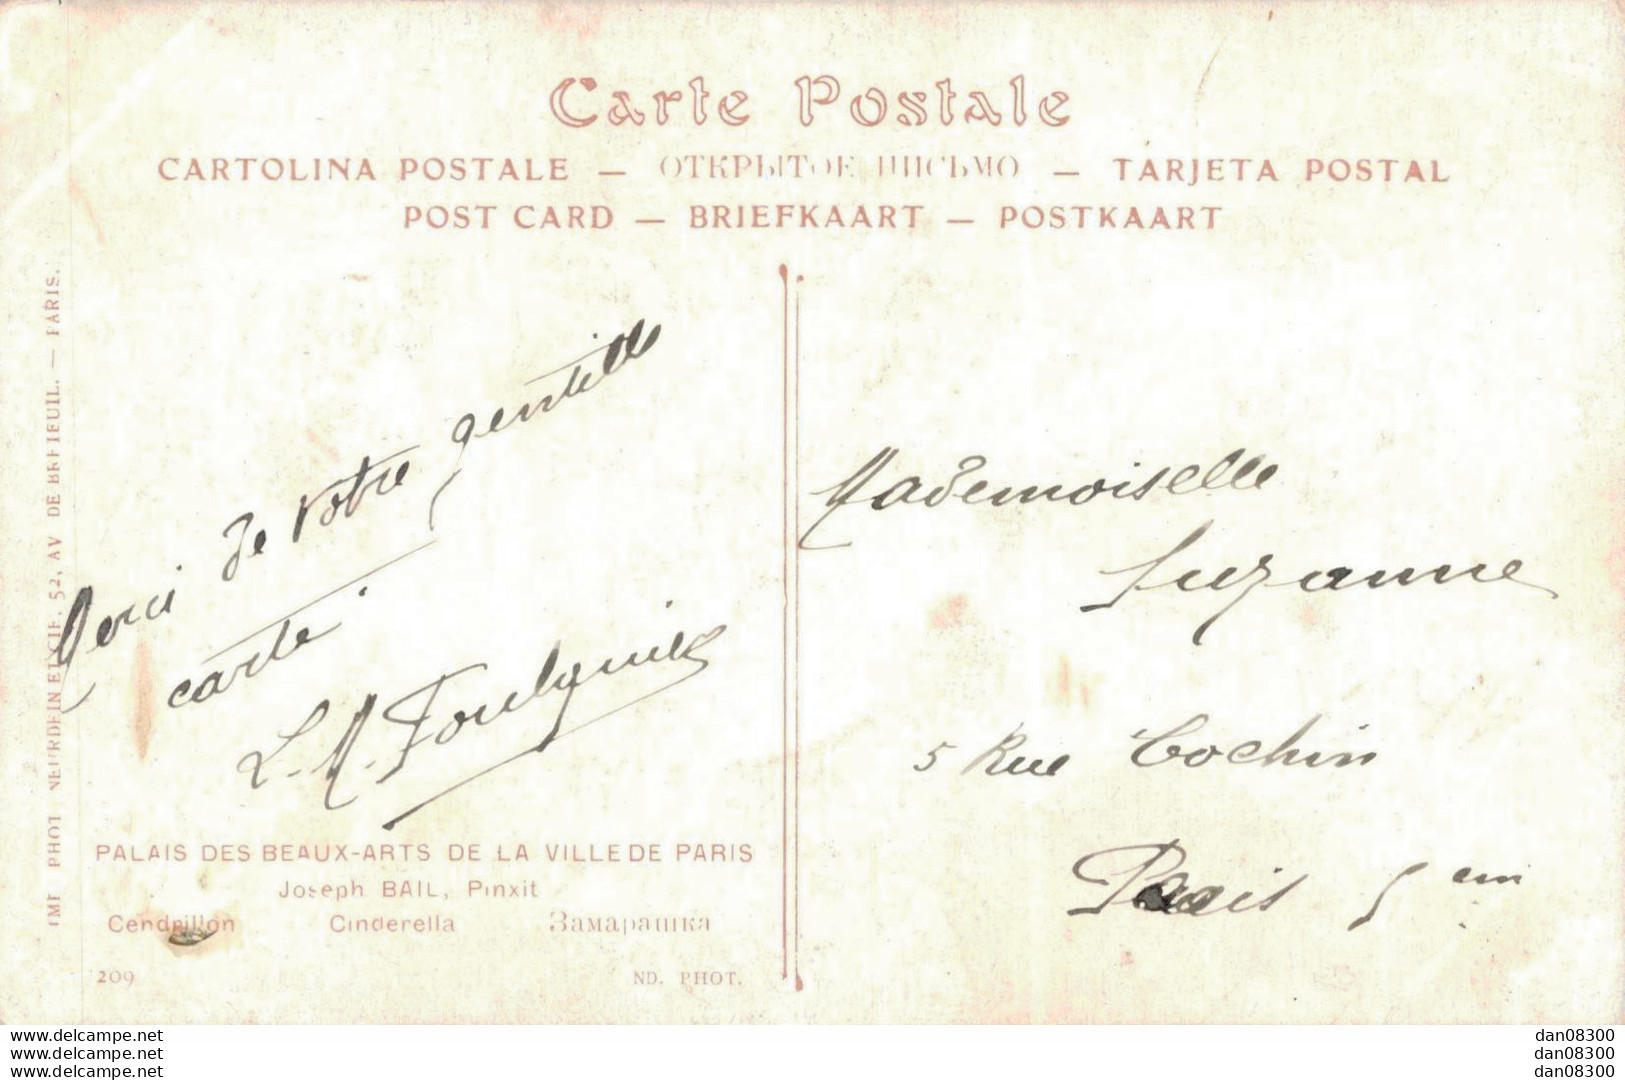 Carte Postale
CARTOLINA POSTALE — ОТКРЫТОЕ ПИСЬМО — TARJETA POSTAL
POST CARD — BRIEFKAART — POSTKAART
IMP PHOT NEURDEIN ET CIE. 52, AV DE BRETEUIL. — PARIS.
Merci de votre gentille
carte
L. M. Foulquier
Mademoiselle
Suzanne
5 Rue Cochin
Paris 5 em
PALAIS DES BEAUX-ARTS DE LA VILLE DE PARIS
Joseph BAIL, Pinxit
Cendrillon Cinderella Замарашка
209 ND. PHOT.
www.delcampe.net dan08300
www.delcampe.net dan08300
www.delcampe.net dan08300